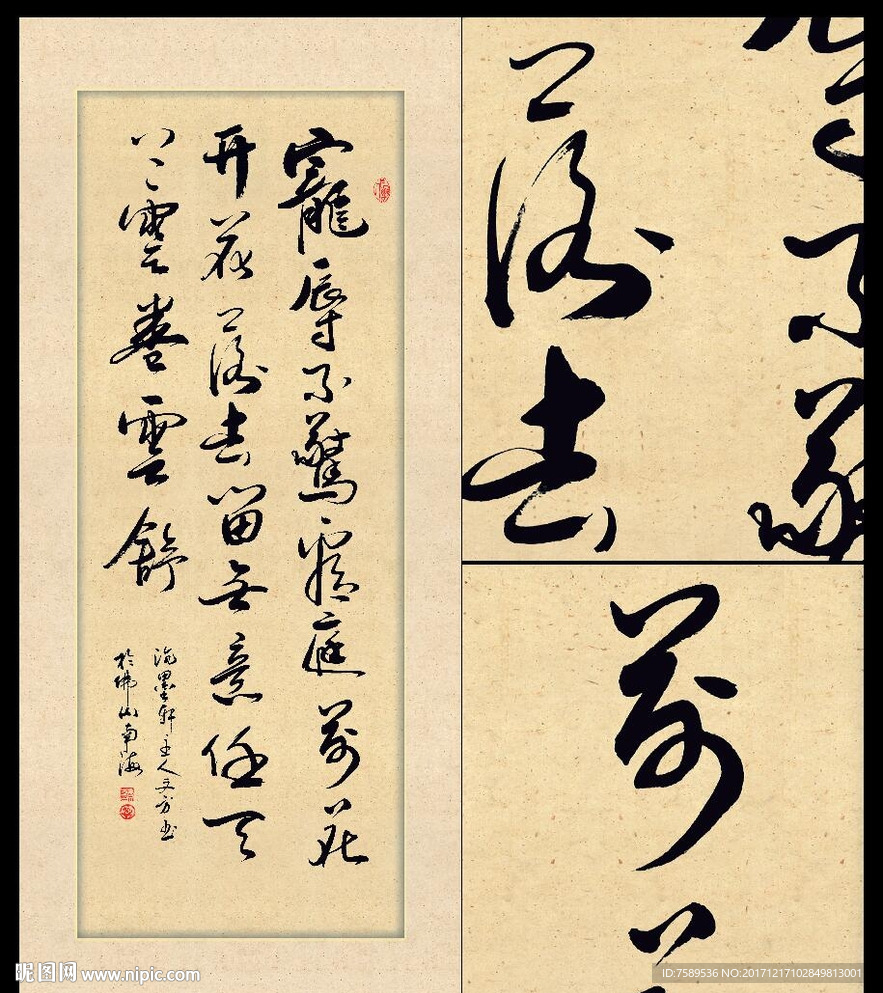 寵辱不驚庭前花
開花落去留無意任天
雲卷雲舒
墨軒主人方书
於佛山南海
落去
不驚
前
昵图网 www.nipic.com
ID:7589536 NO:20171217102849813001